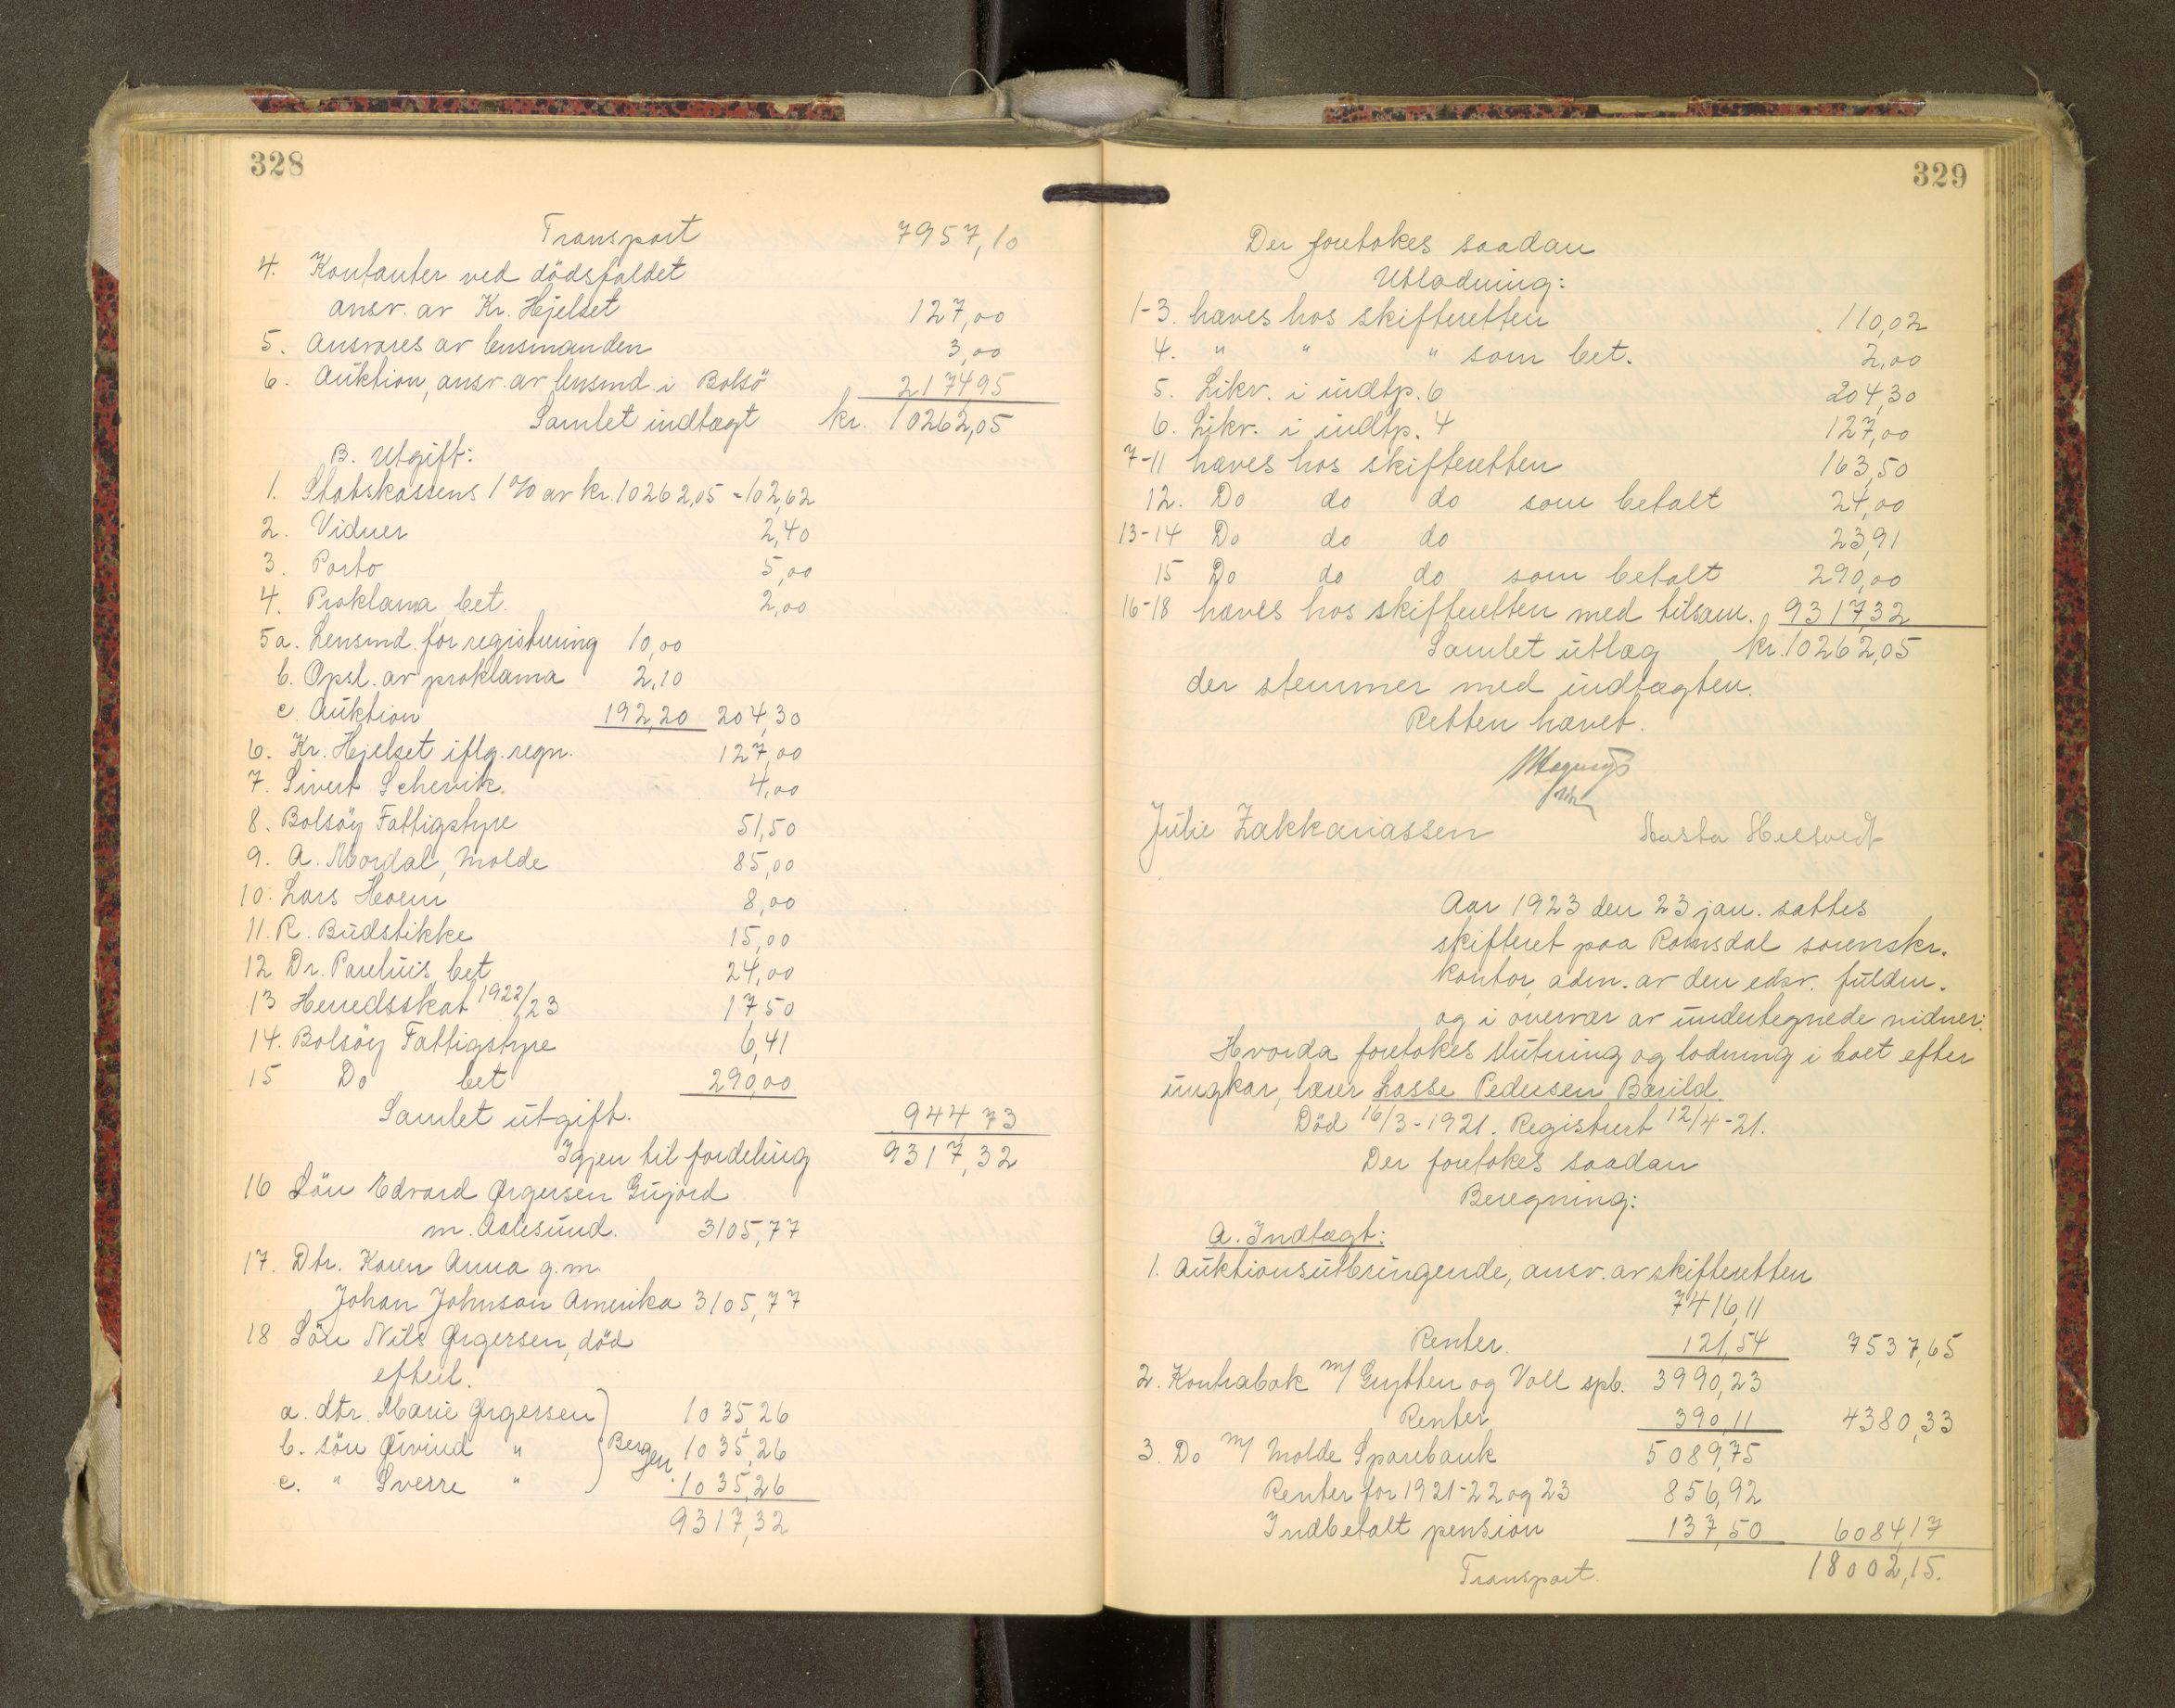 328
Transport 7957,10
4. Kontanter ved dödsfaldet
ansv. av Kr. Hjelset 127,00
5. Ansvares av lensmanden 3,00
6. Auktion, ansv. av lensmd. i Bolsö 2174,95
Samlet indtægt kr. 10262,05
B. Utgift:
1. Statskassens 1% av kr. 10262,05 = 102,62
2. Vidner 2,40
3. Porto 5,00
4. Proklama, bet. 2,00
5a. Lensmd. for registrering 10,00
b. Opsl. av proklama 2,10
c. Auktion 192,20 204,30
6. Kr. Hjelset iflg. regn. 127,00
7. Sivert 4,00
8. Bolsöy Fattigstyre 51,50
9. A. Mordal, Molde 85,00
10. Lars Hoem 8,00
11. R. Budstikke 15,00
12 Dr. Parelius, bet 24,00
13 Herredsskat 1922/23 17,50
14. Bolsöy Fattigstyre 6,41
15 Do bet 290,00
Samlet utgift. 944,73
Igjen til fordeling 9317,32
16 Sön Edvard Ørgersen Gujord
m. Aalesund. 3105,77
17. Dtr. Karen Anna g.m.
Johan Johnson Amerika 3105,77
18 Sön Nils Ørgersen, död
efterl.
a. dtr. Marie Ørgersen 1035,26
b. sön Øivind " Bergen. 1035,26
c. " Sverre " 1035,26
9317,32
329
Der foretokes saadan
Utlodning:
1-3. hæves hos skifteretten 110,02
4. " " " som bet. 2,00
5. Likv. i indtp. 6 204,30
6. Likv. i indtp. 4 127,00
7-11 hæves hos skifteretten 163,50
12. Do do do som betalt 24,00
13-14 Do do do 23,91
15 Do do do som betalt 290,00
16-18 hæves hos skifteretten med tilsam. 9317,32
Samlet utlæg kr. 10262,05
der stemmer med indtægten.
Retten hævet.
Julie Zakkariassen
Aar 1923 den 23 jan. sattes
skifteret paa Romsdal sorenskr.
kontor, adm. av den edsv. fuldm.
og i overvær av undertegnede vidner:
Hvorda foretokes slutning og lodning i boet efter
ungkar, lærer Lasse Pedersen Bærild.
Död 16/3-1921. Registrert 12/4-21.
Der foretokes saadan
Beregning:
A. Indtægt:
1. Auktionsutbringende, ansv. av skifteretten
7416,11
Renter. 121,54 7537,65
2. Kontrabok m/ Grytten og Voll spb. 3990,23
Renter 390,11 4380,33
3. Do m/ Molde Sparebank 5089,75
Renter for 1921-22 og 23 856,92
Indbetalt pension 137,50 6084,17
Transport 18002,15.